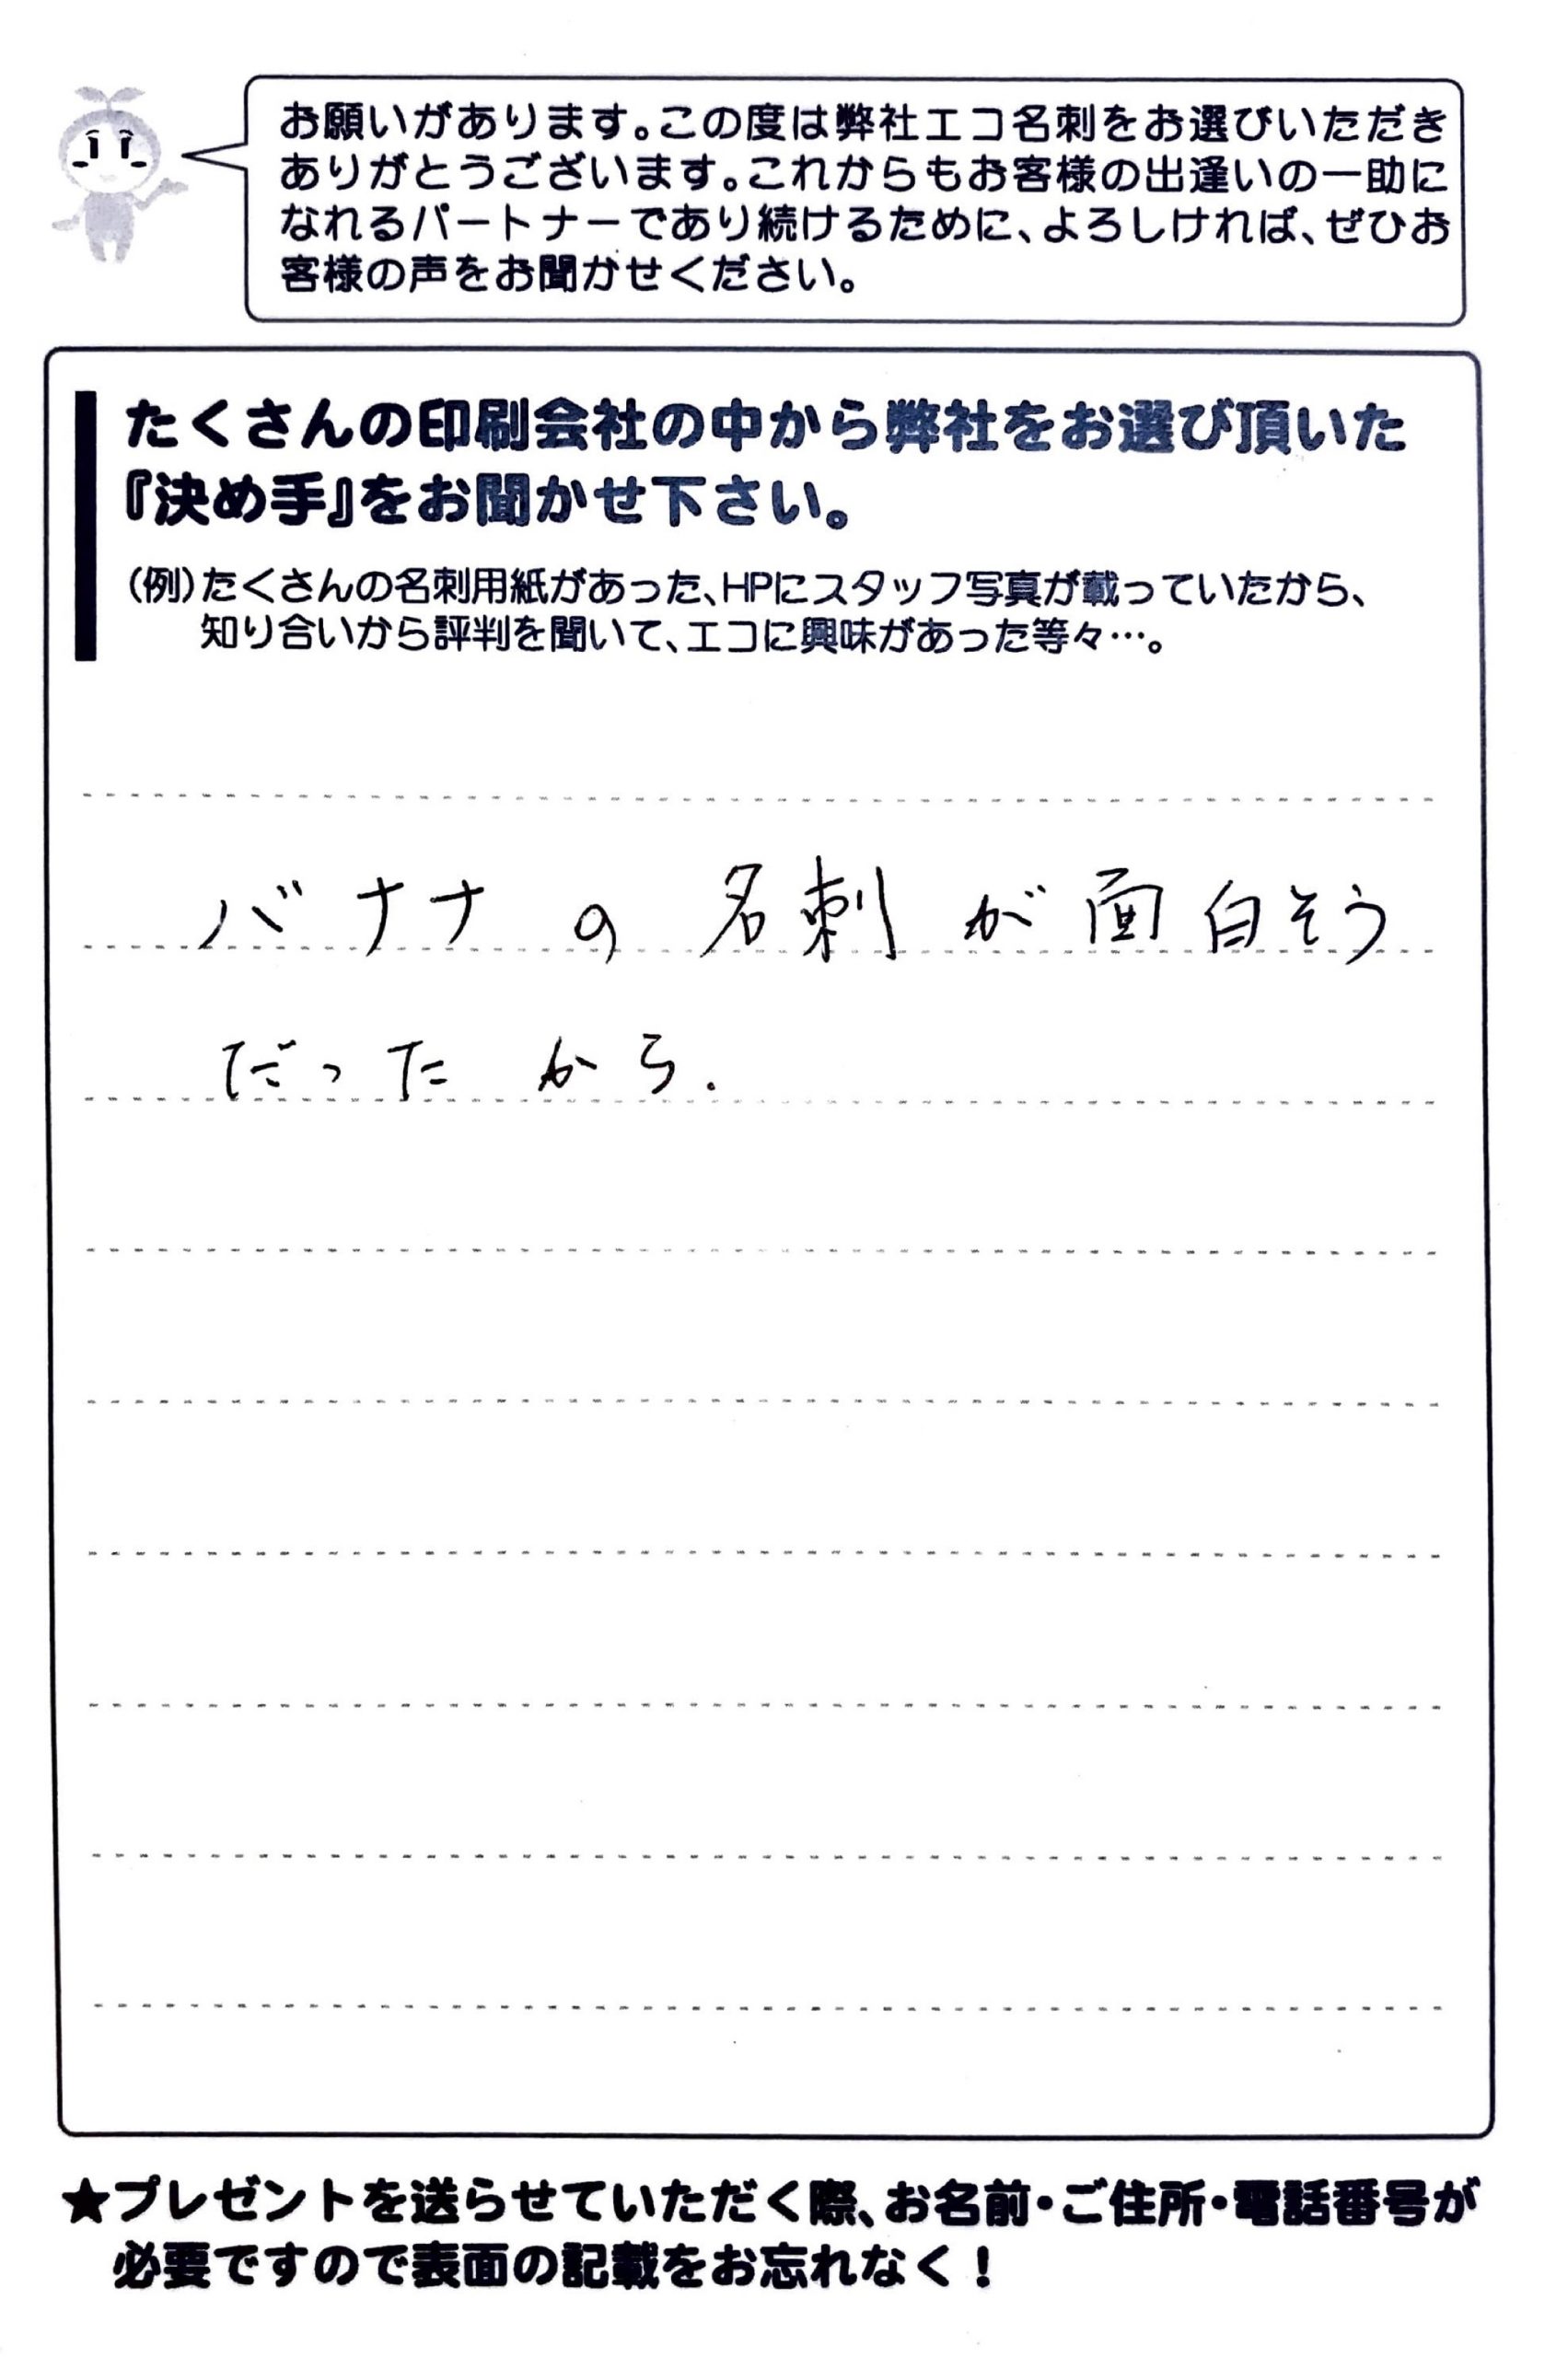 お願いがあります。この度は弊社エコ名刺をお選びいただき
ありがとうございます。これからもお客様の出逢いの一助に
なれるパートナーであり続けるために、よろしければ、ぜひお
客様の声をお聞かせください。
たくさんの印刷会社の中から弊社をお選び頂いた
『決め手』をお聞かせ下さい。
(例)たくさんの名刺用紙があった、HPにスタッフ写真が載っていたから、
知り合いから評判を聞いて、エコに興味があった等々…。
バナナの名刺が面白そう
だったから.
★プレゼントを送らせていただく際、お名前・ご住所・電話番号が
必要ですので表面の記載をお忘れなく！